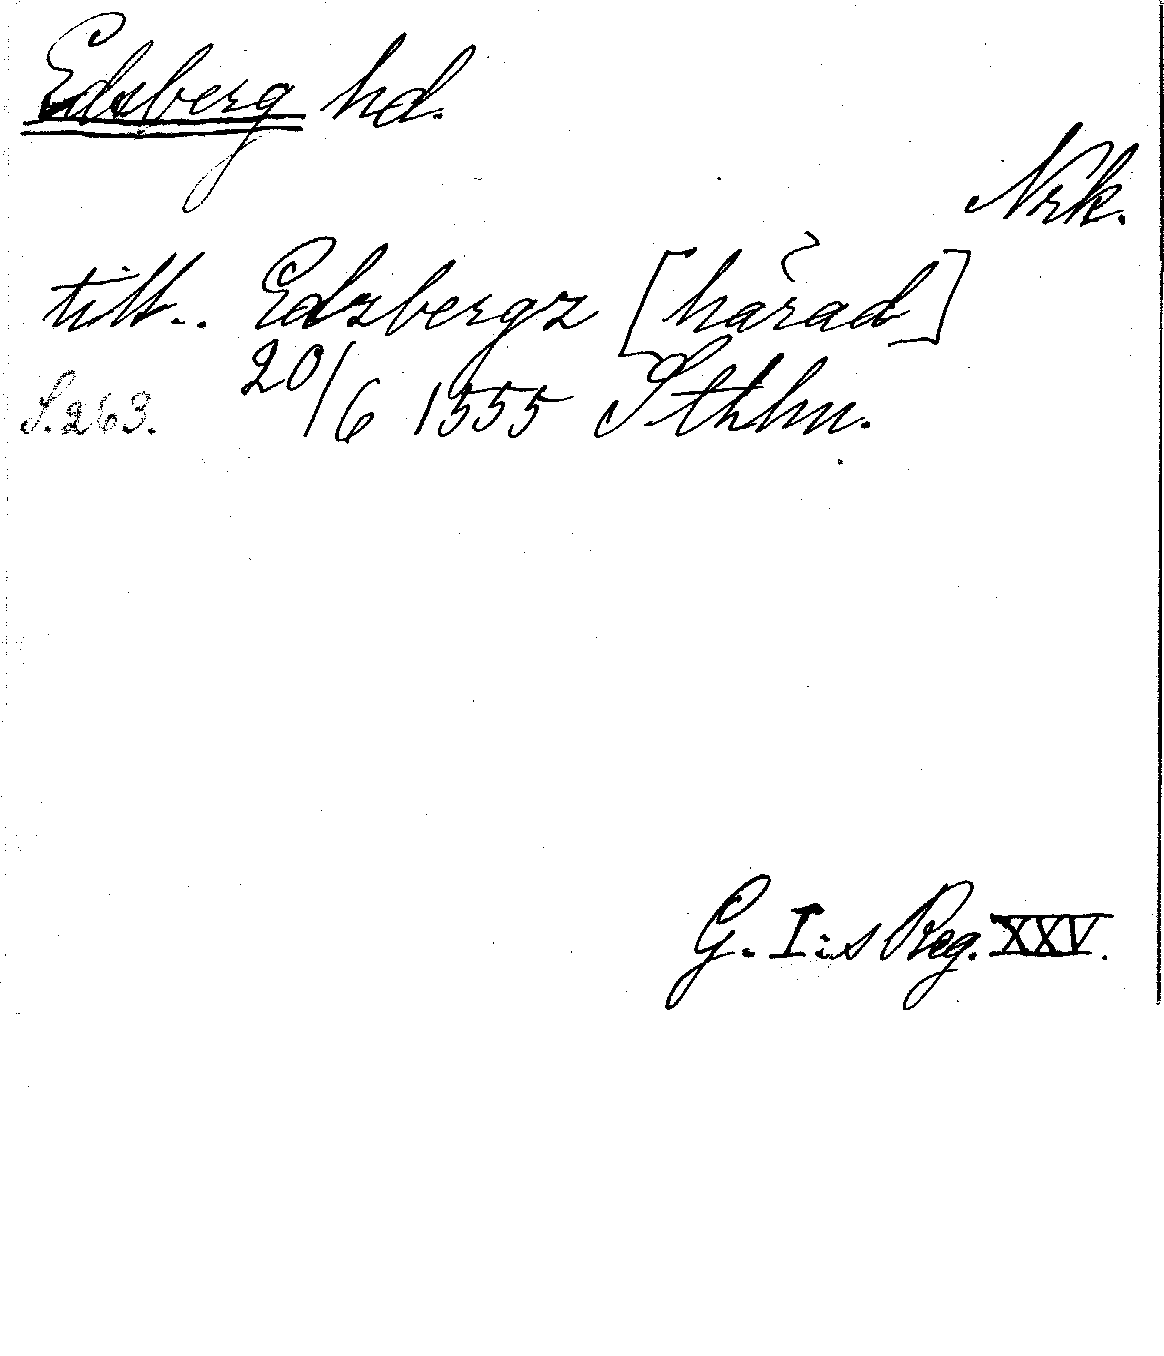 Edsberg hd.
Nrk.
till.. Edzbergz [härad]
S. 263. 20/6 1555 Sthlm.
G. I:s Reg. XXV.